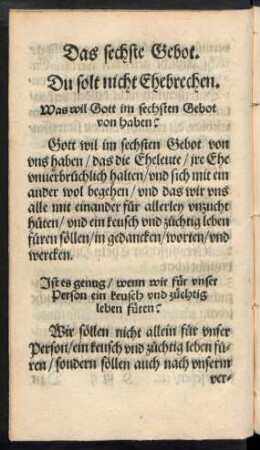 Das sechste Gebot.
Du solt nicht Ehebrechen.
Was wil Gott im sechsten Gebot
von haben?
Gott wil im sechsten Gebot von
vns haben/das die Eheleute/jre Ehe
vnuerbrüchlich halten/vnd sich mit ein
ander wol begehen/vnd das wir vns
alle mit einander für allerley vnzucht
hüten/vnd ein keusch vnd züchtig leben
füren söllen/in gedancken/worten/vnd
wercken.
Ist es genug/wenn wir für vnser
Person ein keusch vnd züchtig
leben füren?
Wir söllen nicht allein für vnser
Person/ein keusch vnd züchtig leben fü-
ren/sondern söllen auch nach vnserm
ver-